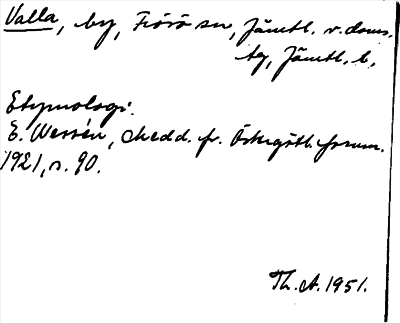 Valla, by, Frösö sn, Jämtl. v. doms.
tg, Jämtl. l.
Etymologi.
E. Wessén, Medd. fr. Östergötl. fornm.
1921, s. 90.
Th. A. 1951.